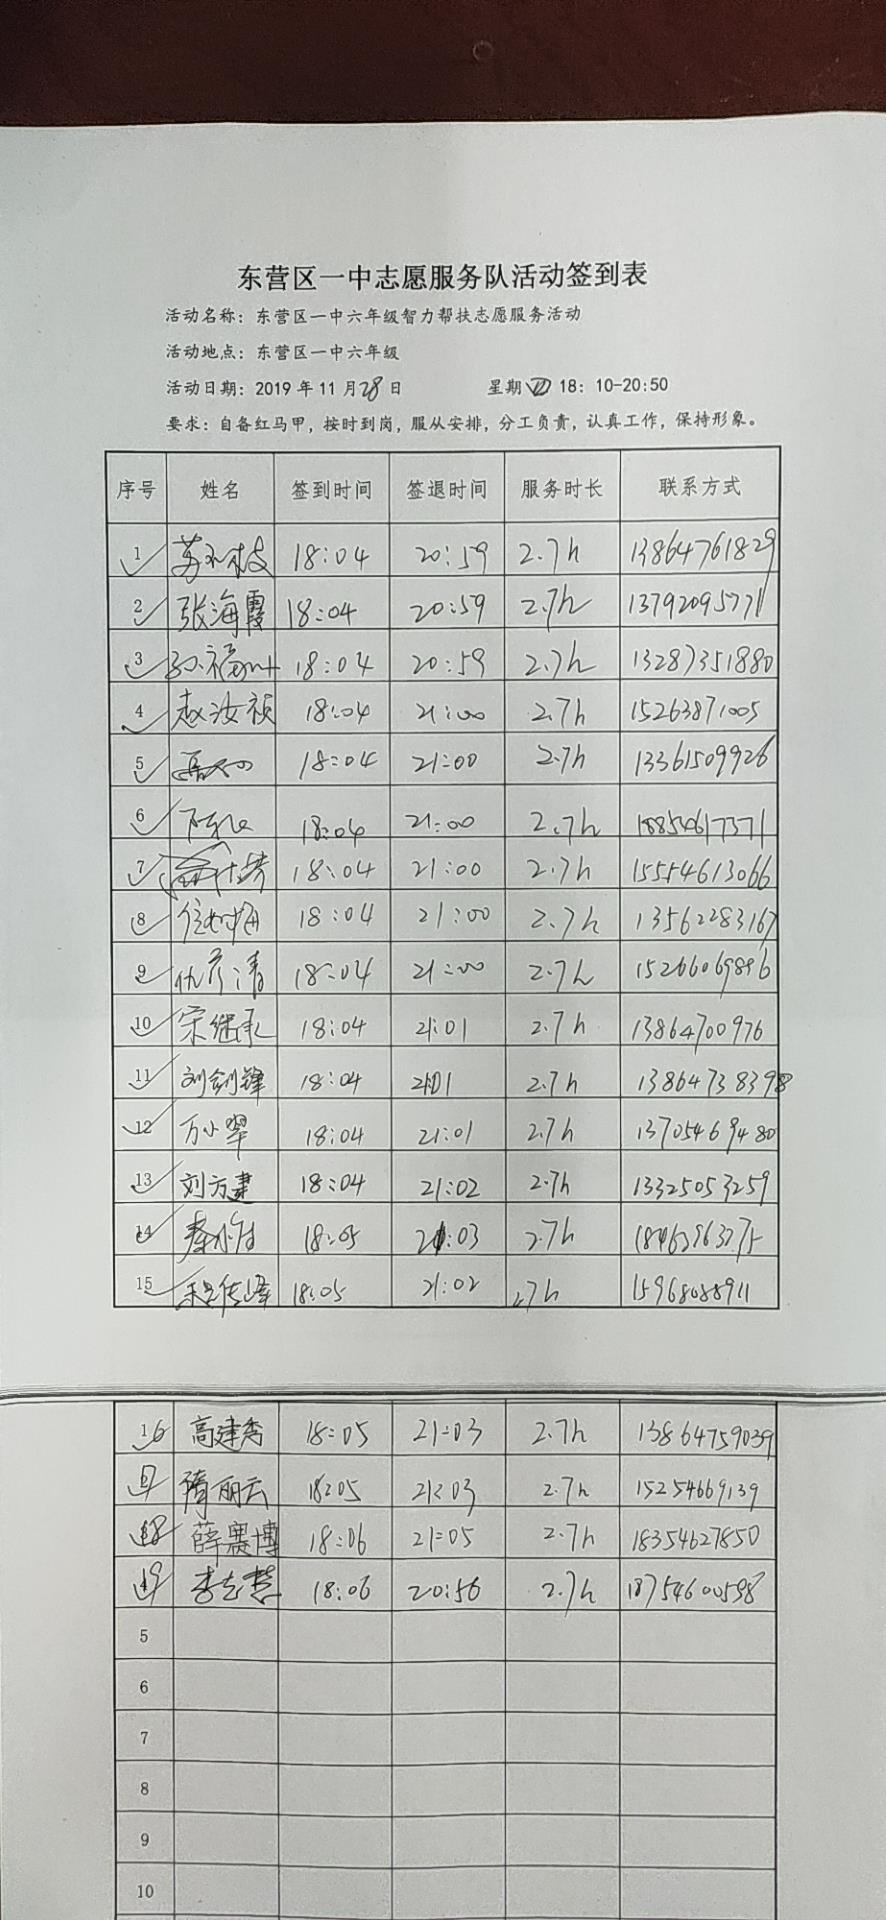 东营区一中志愿服务队活动签到表
活动名称：东营区一中六年级智力帮扶志愿服务活动
活动地点：东营区一中六年级
活动日期：2019 年 11 月 28 日 星期四 18：10-20:50
要求：自备红马甲，按时到岗，服从安排，分工负责，认真工作，保持形象。
序号 姓名 签到时间 签退时间 服务时长 联系方式
1 18:04 20:59 2.7h 13864761829
2 张海霞 18:04 20:59 2.7h 13792095771
3 18:04 20:59 2.7h 13287351880
4 赵汝祯 18:04 21:00 2.7h 15263871005
5 18:04 21:00 2.7h 13361509926
6 18:04 21:00 2.7h 18854617371
7 18:04 21:00 2.7h 15554613066
8 18:04 21:00 2.7h 13562283167
9 仇彦清 18:04 21:00 2.7h 15266069896
10 宋继承 18:04 21:01 2.7h 13864700976
11 刘剑锋 18:04 21:01 2.7h 13864738398
12 万小翠 18:04 21:01 2.7h 13705469480
13 刘方建 18:04 21:02 2.7h 13325053259
14 18:05 21:03 2.7h
15 18:05 21:02 2.7h
16 高建秀 18:05 21:03 2.7h 13864759039
17 隋丽云 18:05 21:03 2.7h 15254669139
18 薛赛博 18:06 21:05 2.7h 18354627850
19 李志慧 18:06 20:56 2.7h 18754600598
5
6
7
8
9
10